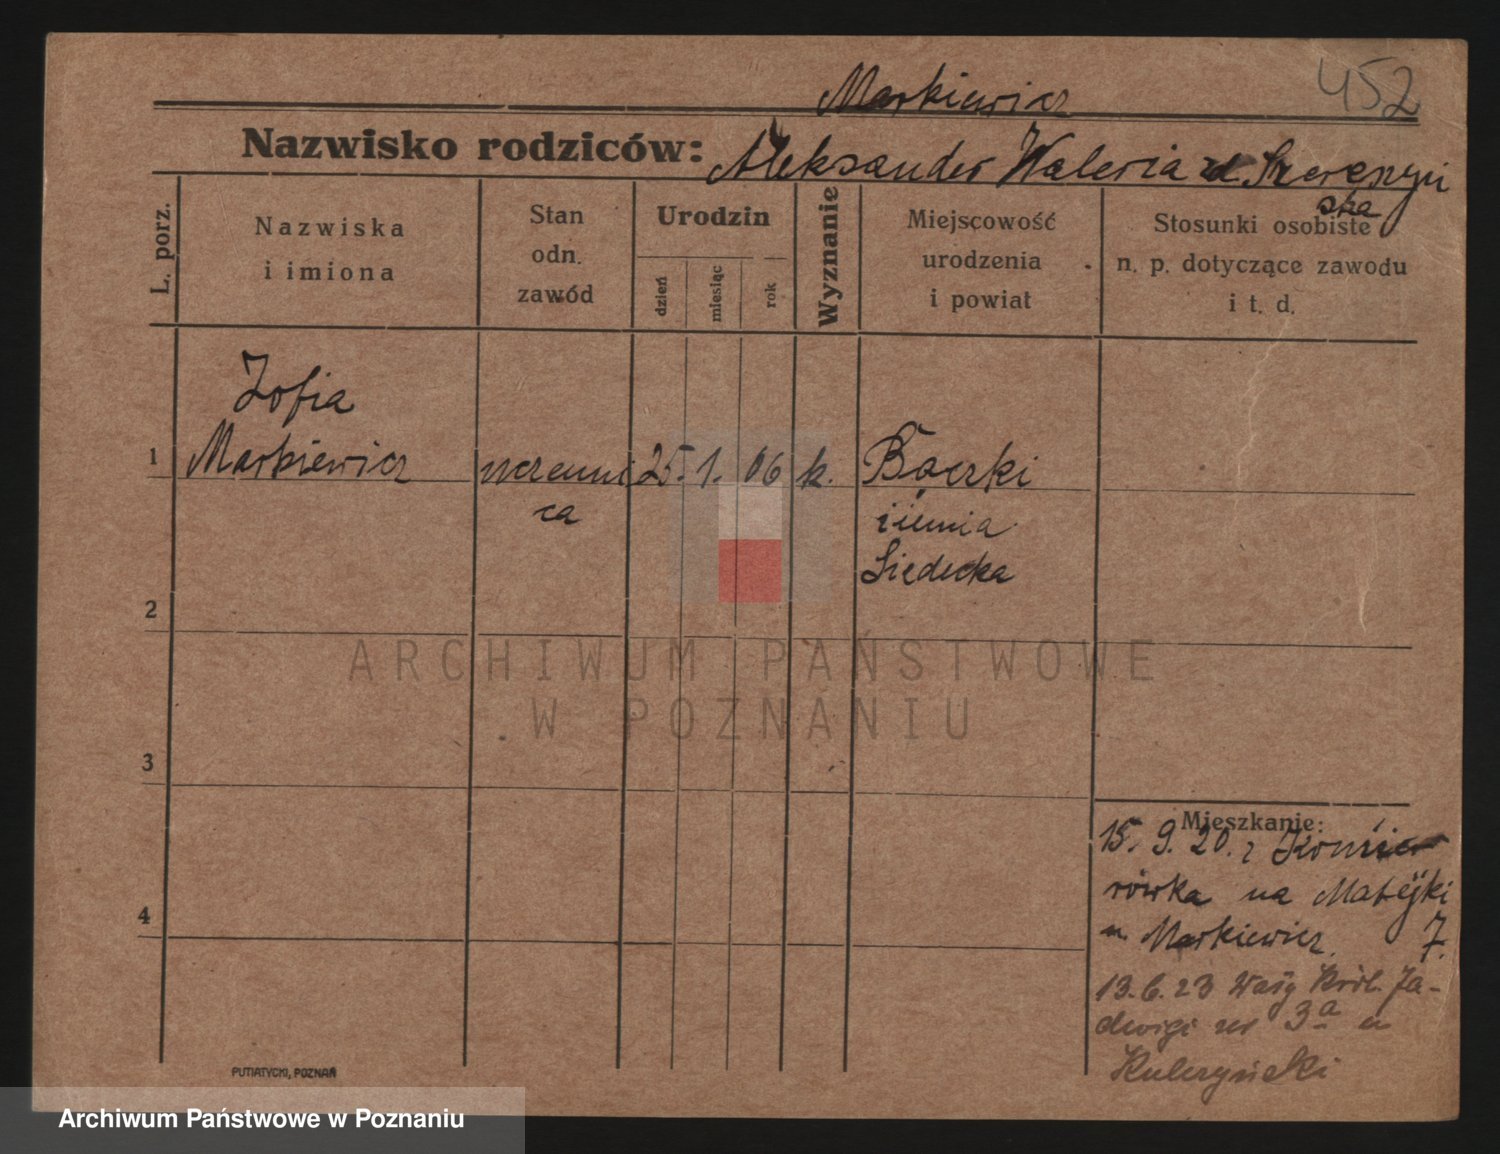 452
Markiewicz
Nazwisko rodziców: Aleksander Waleria
L. porz.
Nazwiska
i imiona
Stan
odn.
zawód
Urodzin
dzień
miesiąc
rok
Wyznanie
Miejscowość
urodzenia
i powiat
ska
Stosunki osobiste
n. p. dotyczące zawodu
i t. d.
Zofia
1 Markiewicz uczenni 25. 1. 06 k. Boczki
ca
ziemia
Siedecka
2
3
4
Mieszkanie:
15. 9. 20. z
rówka na Matejki
u Markiewicz. 7.
13. 6. 23 Wały Król. Ja-
dwigi nr 3a u
Kulczyński
PUTIATYCKI, POZNAŃ
ARCHIWUM PAŃSTWOWE
W POZNANIU
Archiwum Państwowe w Poznaniu